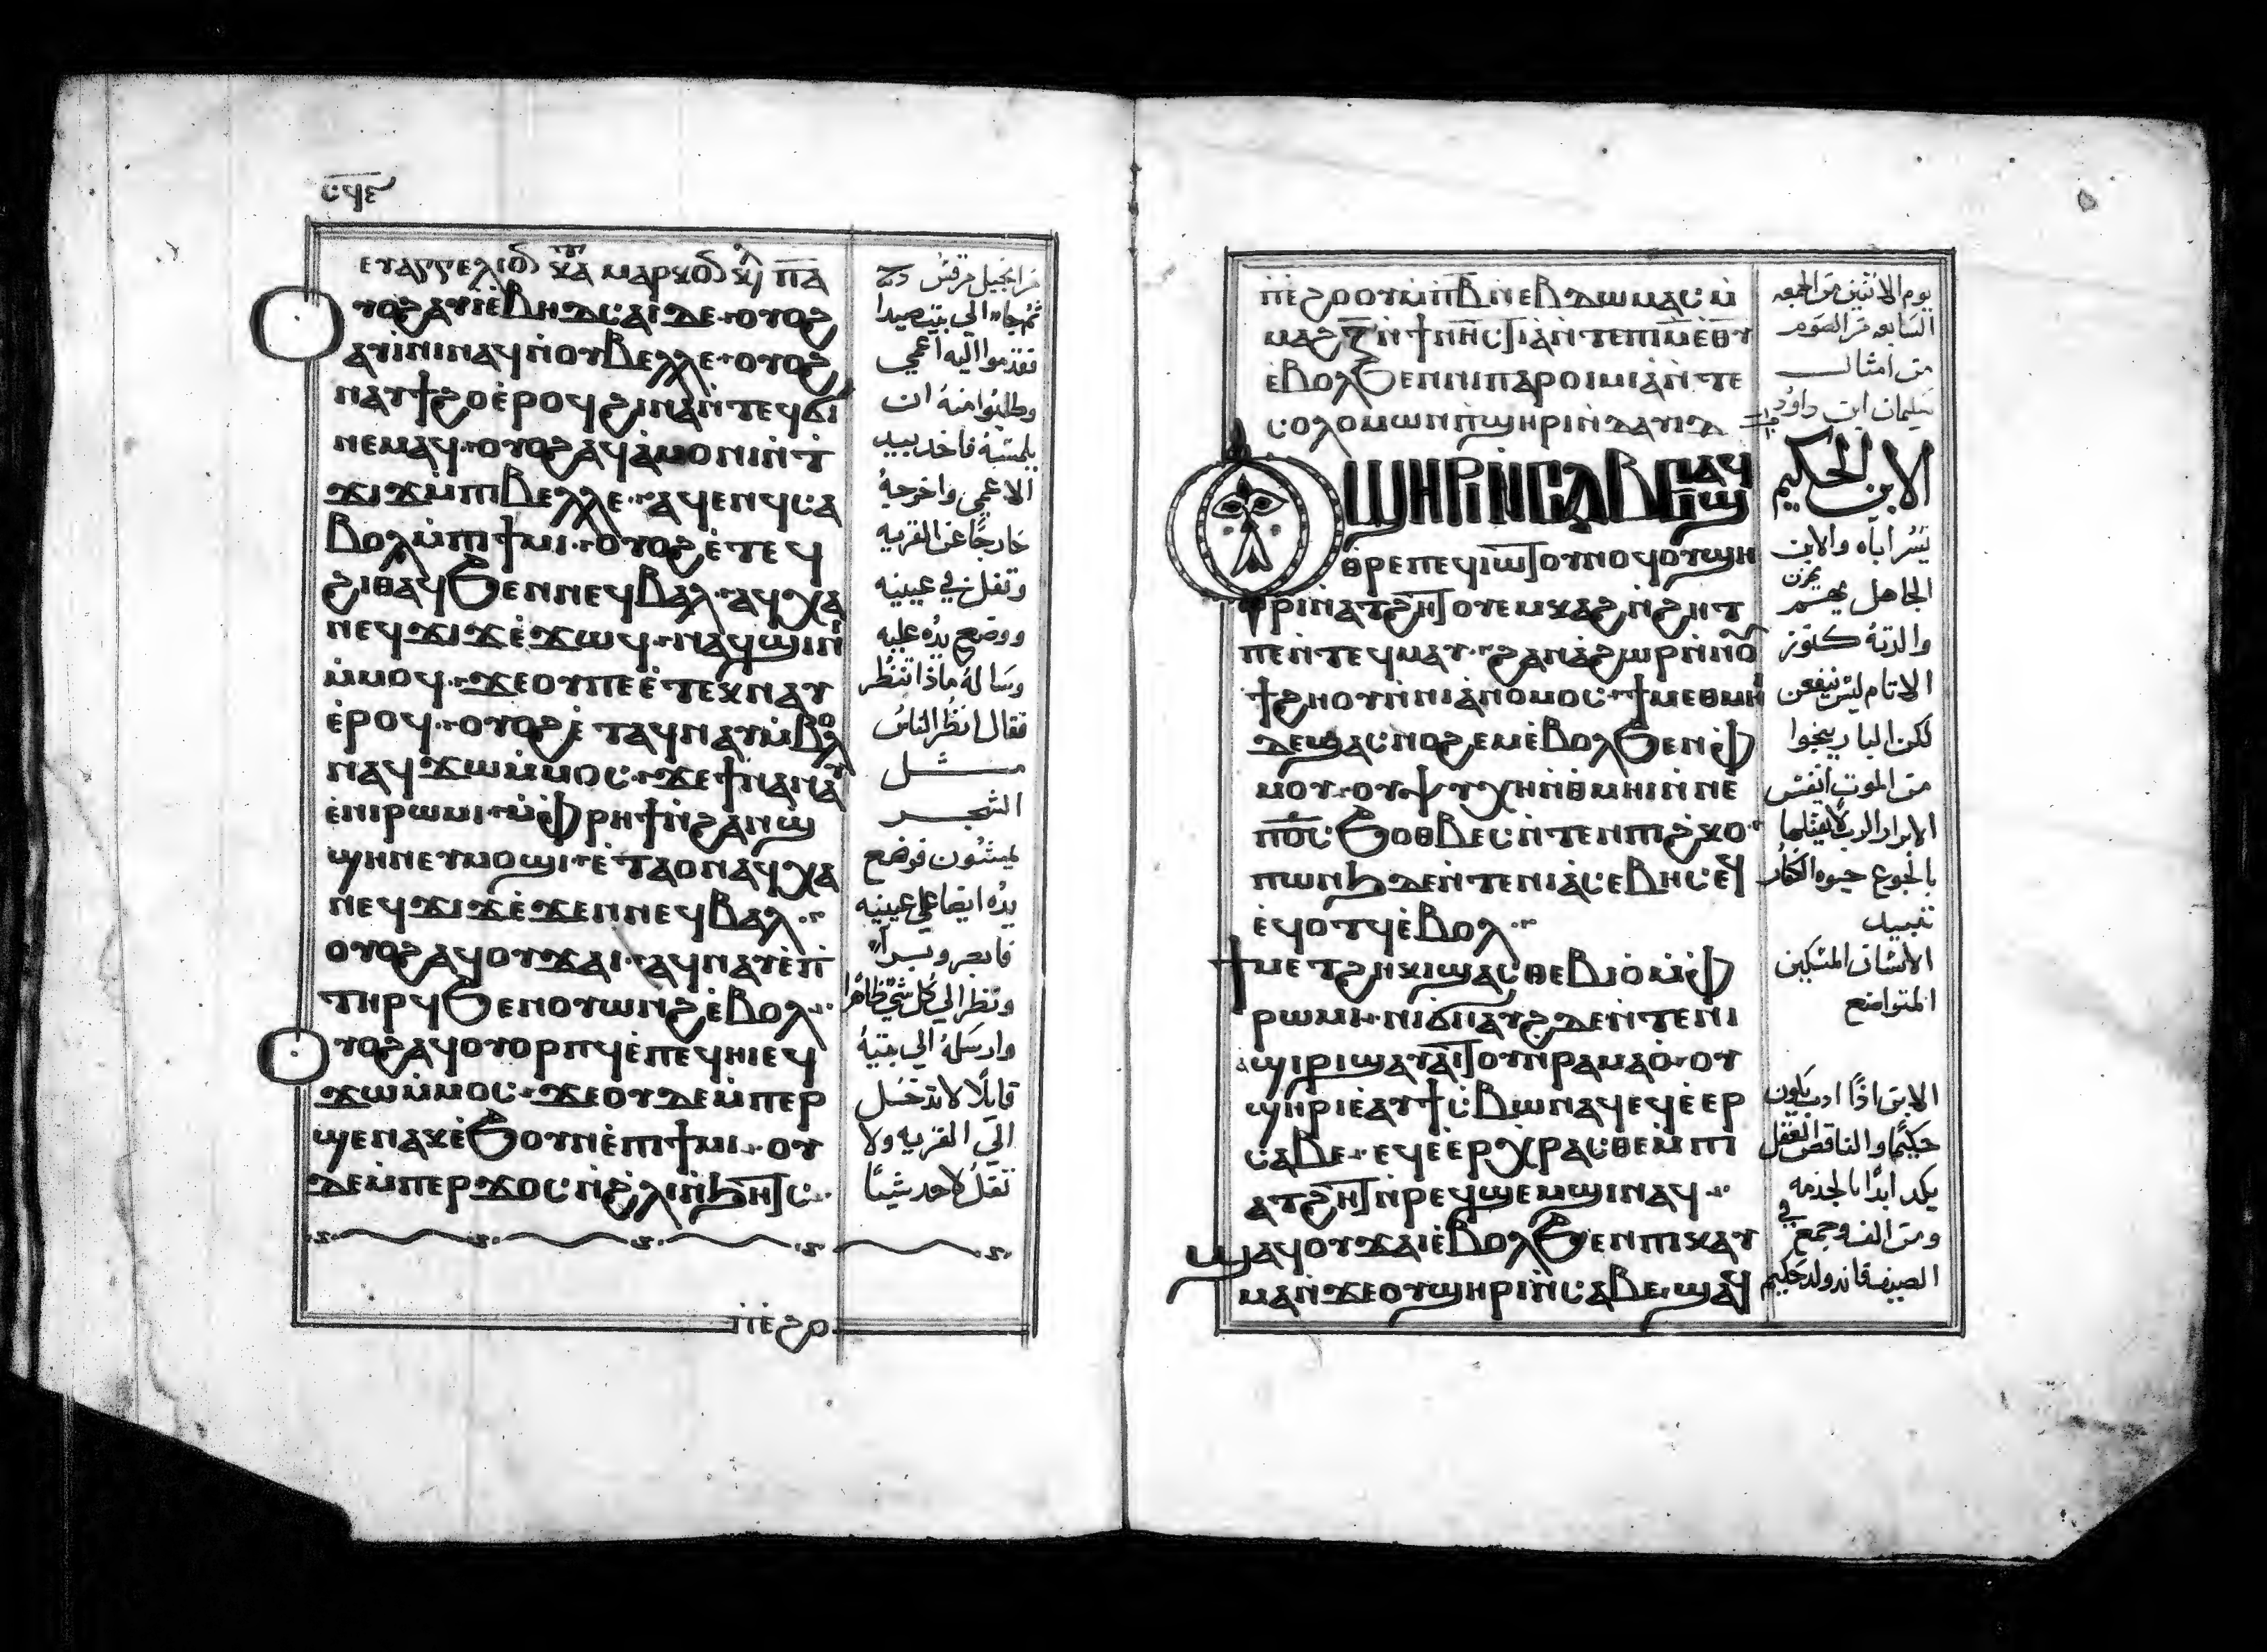 ⲥϥⲉ
ⲉⲩⲁⲅⲅⲉⲗⲓⲟⲛ ⲕⲁⲧⲁ ⲙⲁⲣⲕⲟⲛ ⲡⲁ
ⲟⲩⲟϩ ⲁⲩⲓ̀ⲉ̀ⲃⲏⲇⲥⲁⲓⲇⲁ ⲟⲩⲟϩ
ⲁⲩⲓ̀ⲛⲓⲛⲁϥⲛ̀ⲟⲩⲃⲉⲗⲗⲉ ⲟⲩⲟϩ
ⲛⲁⲩϯϩⲟⲉ̀ⲣⲟϥϩⲓⲛⲁⲛ̀ⲧⲉϥϭⲓ
ⲛⲉⲙⲁϥ ⲟⲩⲟϩⲁϥⲁ̀ⲙⲟⲛⲓⲛ̀ⲧ̀
ϫⲓϫⲙ̀ⲡⲓⲃⲉⲗⲗⲉ ⲁϥⲉⲛϥⲥⲁ
ⲃⲟⲗⲙ̀ⲡⲓϯⲙⲓ ⲟⲩⲟϩⲉ̀ⲧⲉϥ
ϩⲓⲑⲁϥϧⲉⲛⲛⲉϥⲃⲁⲗ ⲁϥⲭⲁ
ⲛⲉϥϫⲓϫⲉ̀ϫⲱϥ ⲛⲁϥϣⲓⲛⲓ
ⲙ̀ⲙⲟϥ ϫⲉⲟⲩⲡⲉⲉ̀ⲧⲉⲕⲛⲁⲩ
ⲉ̀ⲣⲟϥ ⲟⲩⲟϩⲉ̀ⲧⲁϥⲛⲁⲩⲙ̀ⲃⲟⲗ
ⲛⲁϥϫⲱⲙ̀ⲙⲟⲥ ϫⲉϯⲛⲁⲛⲁⲩ
ⲉ̀ⲛⲓⲣⲱⲙⲓ ⲙ̀ⲫⲣⲏϯⲛ̀ϩⲁⲛϣ
ϣⲏⲛⲉⲩⲙⲟϣⲓ ⲉ̀ⲧⲁⲟⲛⲁϥⲭⲁ
ⲛⲉϥϫⲓϫⲉ̀ϫⲉⲛⲛⲉϥⲃⲁⲗ
ⲟⲩⲟϩⲁϥⲟⲩϫⲁⲓ ⲁϥⲛⲁⲩⲉ̀ⲡⲓ̀
ⲧⲏⲣϥϧⲉⲛⲟⲩⲱⲛϩⲉ̀ⲃⲟⲗ
ⲟⲩⲟϩⲁϥⲟⲩⲟⲣⲡϥⲉ̀ⲡⲉϥⲏⲓⲉϥ
ϫⲱⲙ̀ⲙⲟⲥ ϫⲉⲟⲩⲇⲉⲙ̀ⲡⲉⲣ
ϣⲉⲛⲁⲕⲉ̀ϧⲟⲩⲛⲉ̀ⲡⲓϯⲙⲓ ⲟⲩ
ⲇⲉⲙ̀ⲡⲉⲣϫⲟⲥⲛ̀ϩⲗⲓⲛ̀ϧⲏⲧⲥ
ⲡⲓⲉ̀ϩⲟ
من انجيل مرقس
ثم جاء الي بيت صيدا
فقدموا اليه اعمي
وطلبوا منه ان
يلمسه فاخد بيد
الاعمي واخرجه
خارجًا عن القريه
وتفل في عينيه
ووضع يده عليه
وساله ماذا تنظر
فقال انظر الناس
مثل
الشجر
يمشون فوضع
يده ايضا علي عينيه
فابصر وبرأ
ونظر الي كل شي ظاهرا
وارسله الي بيته
قايلًا لا تدخل
الي القريه ولا
تقل لاحد شيئًا
ⲡⲓⲉ̀ϩⲟⲟⲩⲙ̀ⲡⲃⲛ̀ⲉⲃⲇⲱⲙⲁⲥ ⲙ̀
ⲙⲁϩⲍ̅ⲛ̀ϯⲛⲏⲥⲧⲓⲁⲛ̀ⲧⲉⲡⲓⲙⲉⲑⲩ
ⲉ̀ⲃⲟⲗϧⲉⲛⲛⲓⲡⲁⲣⲟⲓⲙⲓⲁⲛ̀ⲧⲉ
ⲥⲟⲗⲟⲙⲱⲛⲡ̀ϣⲏⲣⲓⲛ̀ⲇⲁⲩⲓⲇ
ⲟⲩϣⲏⲣⲓⲛ̀ⲥⲁⲃⲉϣⲁϥ
ⲑⲣⲉⲡⲉϥⲓⲱⲧⲟⲩⲛⲟϥ ⲟⲩϣⲏ
ⲣⲓⲛ̀ⲁⲧϩⲏⲧⲟⲩⲉⲙⲕⲁϩⲛ̀ϩⲏⲧ
ⲡⲉⲛ̀ⲧⲉϥⲙⲁⲩ ϩⲁⲛⲁ̀ϩⲱⲣⲛ̀ⲛⲟ
ϯϩⲏⲟⲩⲛ̀ⲛⲓⲁ̀ⲛⲟⲙⲟⲥ ϯⲙⲉⲑⲙⲏⲓ
ⲇⲉϣⲁⲥⲛⲟϩⲉⲙⲉ̀ⲃⲟⲗϧⲉⲛⲫ
ⲙⲟⲩ ⲟⲩⲯⲩⲭⲏⲛ̀ⲑⲙⲏⲓⲛ̀ⲛⲉ
ⲡⲟ̅ⲥ̅ϧⲟⲑⲃⲉⲥⲛ̀ⲧⲉⲛⲡⲓϩ̀ⲕⲟ
ⲡⲱⲛϧⲇⲉⲛ̀ⲧⲉⲛⲓⲁ̀ⲥⲉⲃⲏⲥⲉϥ
ⲉ̀ϥⲟⲧϥⲉ̀ⲃⲟⲗ
ϯⲙⲉⲧϩⲏⲕⲓϣⲁⲥⲑⲉⲃⲓⲟ̀ⲙ̀ⲫ
ⲣⲱⲙⲓ ⲛⲓϭⲛⲁⲩϩⲇⲉⲛ̀ⲧⲉⲛⲓ
ϣⲓⲣⲓϣⲁⲩⲁⲓⲧⲟⲩⲛ̀ⲣⲁⲙⲁⲟ̀ ⲟⲩ
ϣⲏⲣⲓⲉ̀ⲁⲩϯⲥ̀ⲃⲱⲛⲁϥⲉϥⲉ̀ⲉⲣ
ⲥⲁⲃⲉ ⲉϥⲉ̀ⲉⲣⲭⲣⲁⲥⲑⲉⲙ̀ⲡⲓ
ⲁⲧϩⲏⲧⲛ̀ⲣⲉϥϣⲉⲙϣⲓⲛⲁϥ
ϣⲁϥⲟⲩϫⲁⲓⲉ̀ⲃⲟⲗϧⲉⲛⲡⲓⲕⲁⲩ
ⲙⲁⲛ̀ϫⲉⲟⲩϣⲏⲣⲓⲛ̀ⲥⲁⲃⲉ ϣⲁϥ
يوم الاثنين من الجمعه
السابعه من الصوم
من امثال
سليمان ابن داود
الابن الحكيم
يسر اباه والابن
الجاهل يحزن
والدته كنوز
الاثام ليس ينفعن
لكن البار ينجوا
من الموت انفس
الابرار الرب لا يقتلها
بالجوع حيوه الكفار
تبيد
الانسان المسكين
المتواضع
الابن اذًا ادب يكون
حكيمًا والناقص العقل
يكد ابدًا بالخدمه
ومن الفه وجمع في
الصيف فانه ولد حكيم